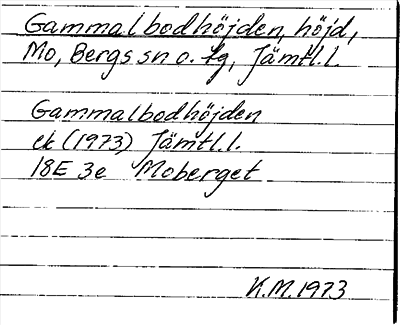 Gammalbodhöjden, höjd,
Mo, Bergs sn o. tg, Jämtl.l.
Gammalbodhöjden
ek (1973) Jämtl.l.
18E 3e Moberget
K.M. 1973